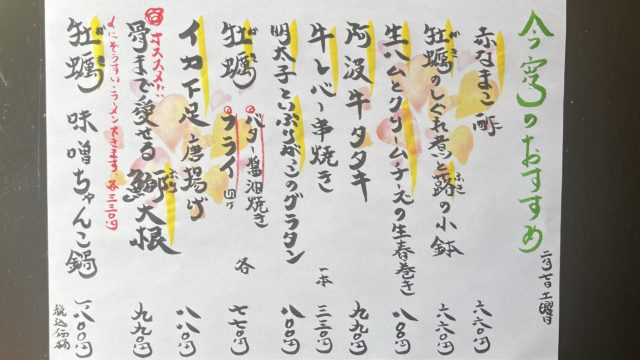 今宵のおすすめ
二月七日 土曜日
赤なまこ酢 六六〇円
牡蠣のしぐれ煮と蕗の小鉢 六六〇円
がき
ふき
生ハムとクリームチーズの生春巻き 八八〇円
阿波牛タタキ 九九〇円
牛レバー串焼き 一本 三三〇円
明太子といぶりがっこのグラタン 八八〇円
牡蠣 バタ醤油焼き 各 七七〇円
がき
フライ 四ヶ
イカ下足唐揚げ 八八〇円
オススメ!!
骨まで愛せる鰤大根 九九〇円
ぶり
〆にぞうすい・ラーメンできます。各三三〇円
牡蠣 味噌ちゃんこ鍋 一、八〇〇円
がき
税込価格